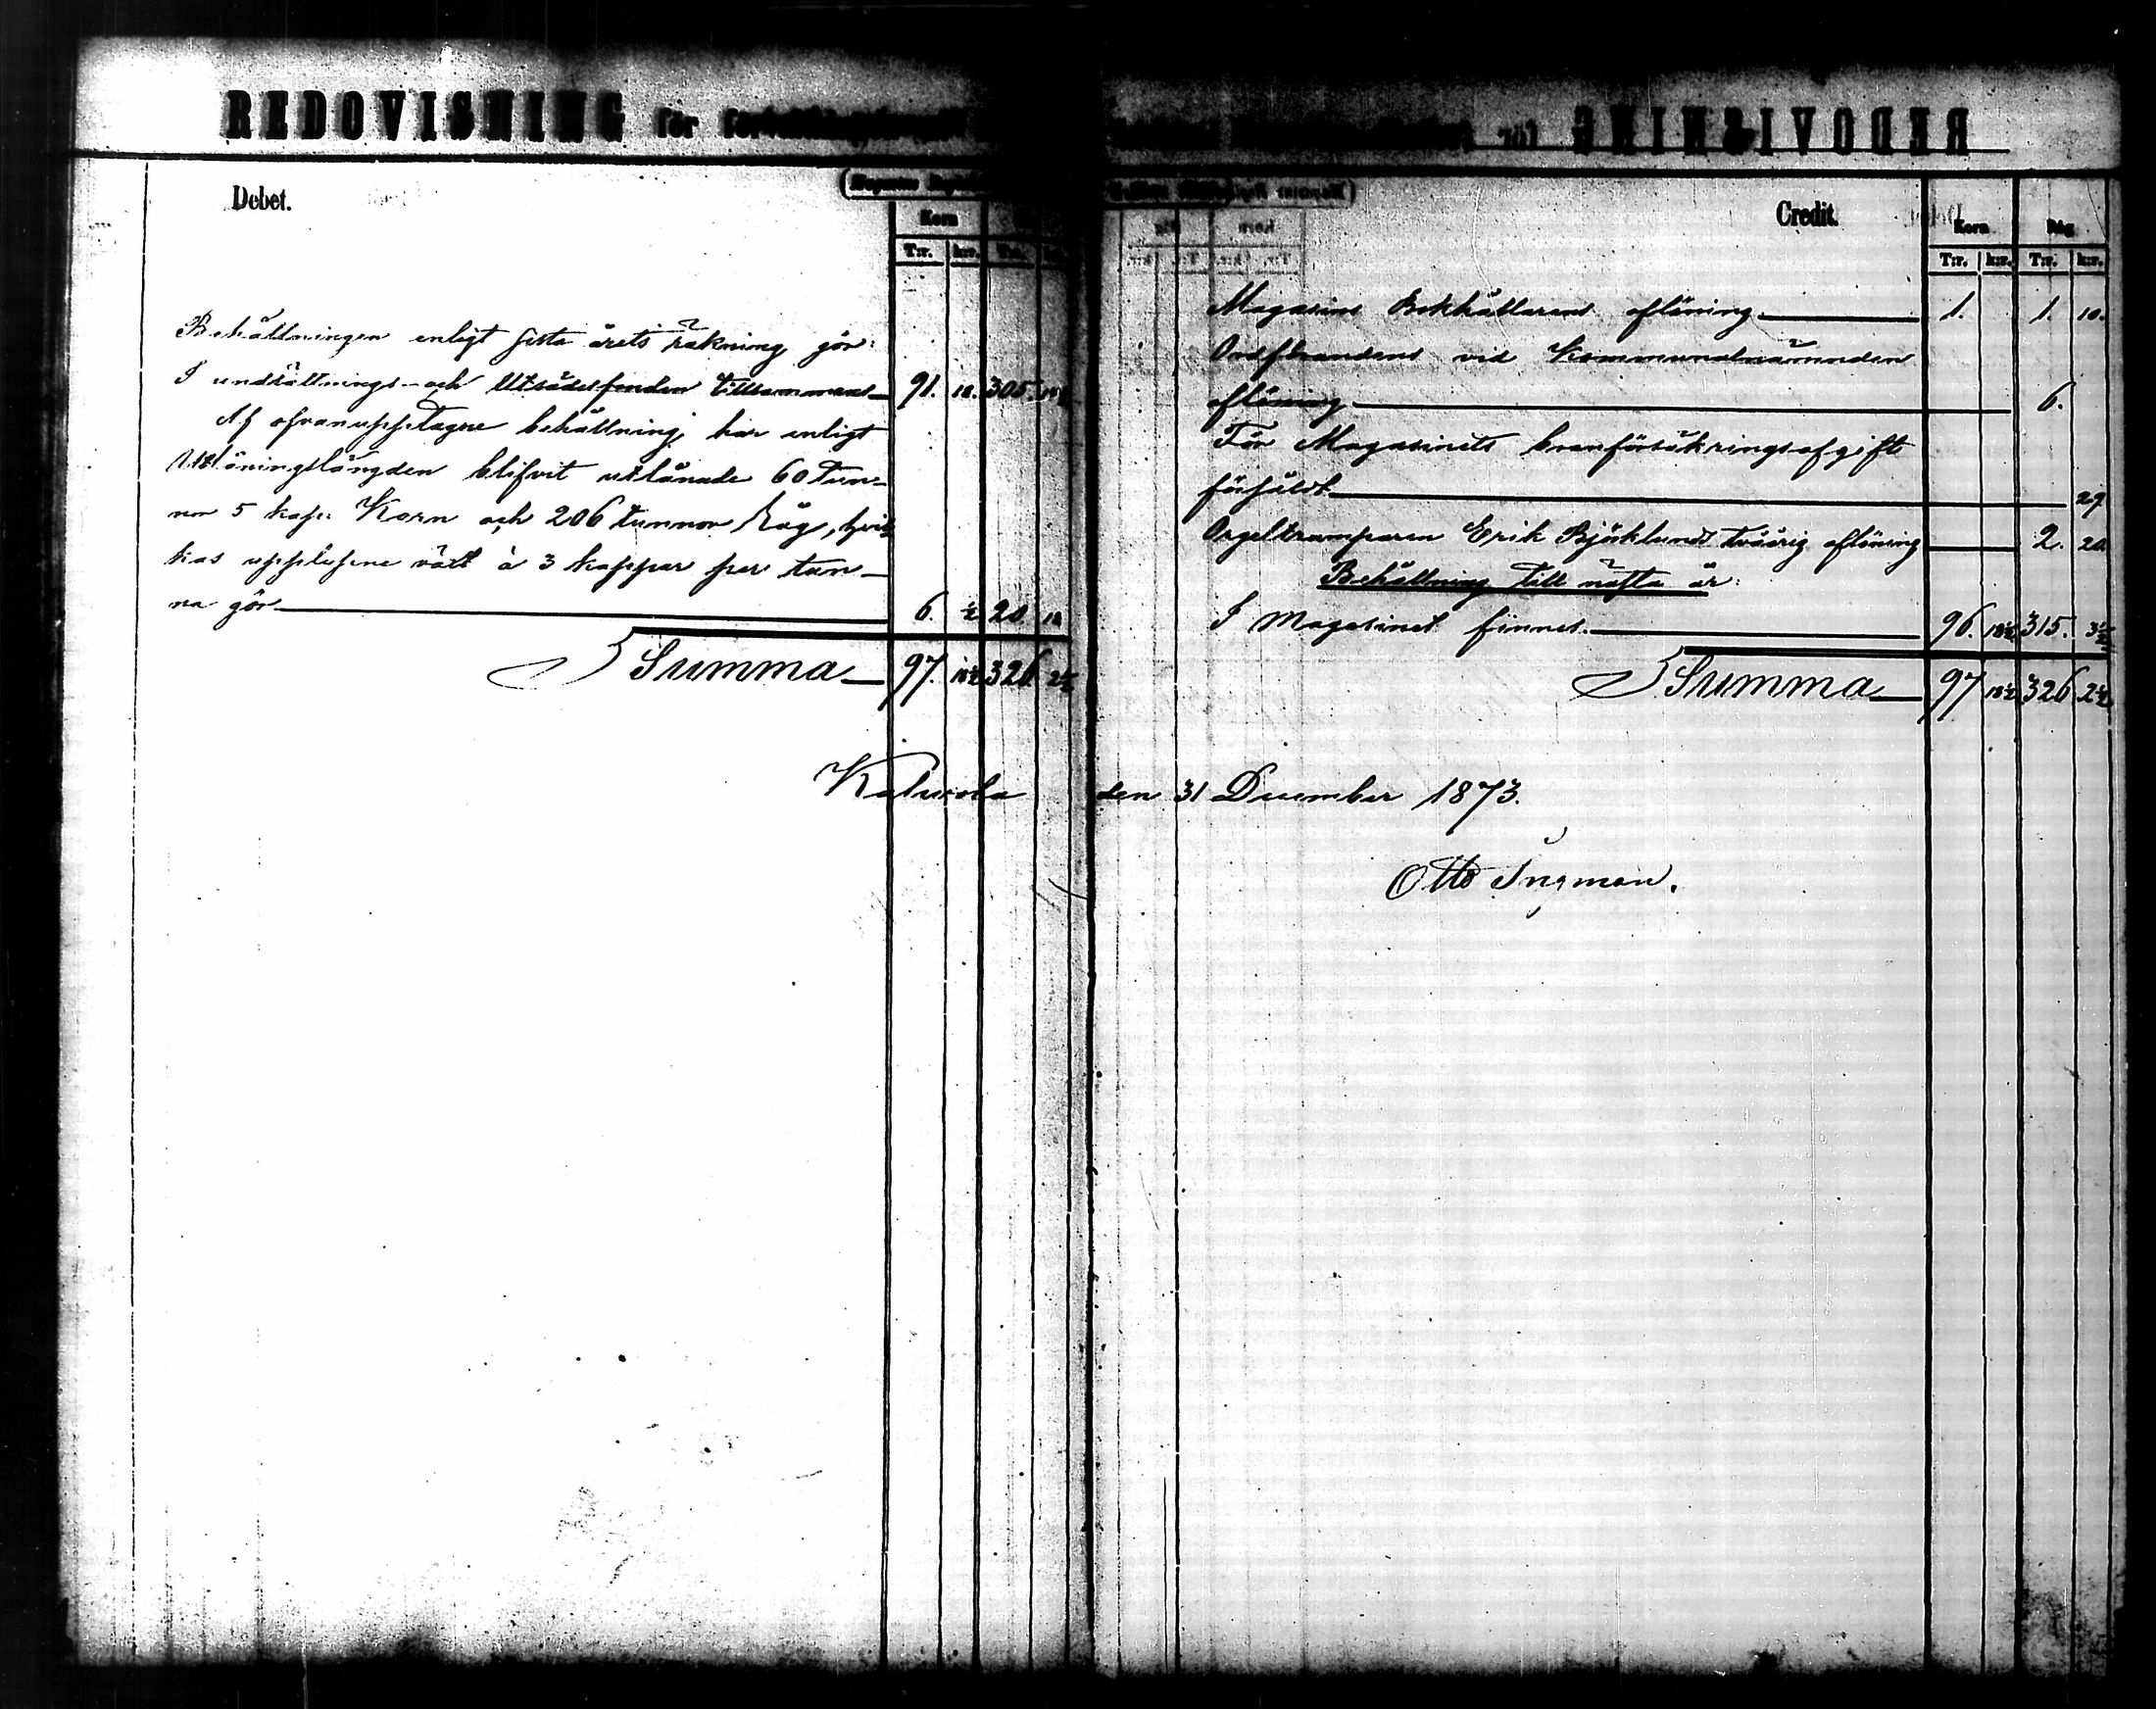 REDOVISNING för
Debet.
Korn
T:r. k:r.
Behållningen enligt sista årets räkning gör:
I undsättnings- och Utsädesfonden tillsammans 91. 18. 305.
Af ofvanupptagne behållning, har enligt
Utlåningslängden blifvit utlånade 60 Tun-
nor 5 kapp. Korn och 206 tunnor Råg, hvil-
kas upplupne växt à 3 kappar per tun-
na gör 6. ½ 20.
Summa 97. 18½ 326. 2½
Credit.
Korn Råg
T:r. k:r. T:r. k:r.
Magasins Bokhållarens aflöning 1. 1. 10.
Ordförandens vid Kommunalnämnden
aflöning 6.
För Magasinets branförsäkringsafgift
försåldt 29
Orgeltramparen Erik Björklunds tvåårig aflöning 2. 20
Behållning till nästa år:
I Magasinet finnes 96. 18½ 315. 3½
Summa 97 18½ 326 2½
den 31 December 1873.
Otto Ingman.